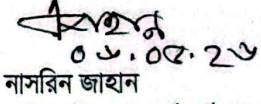 ০৯.০৫.২৬
নাসরিন জাহান